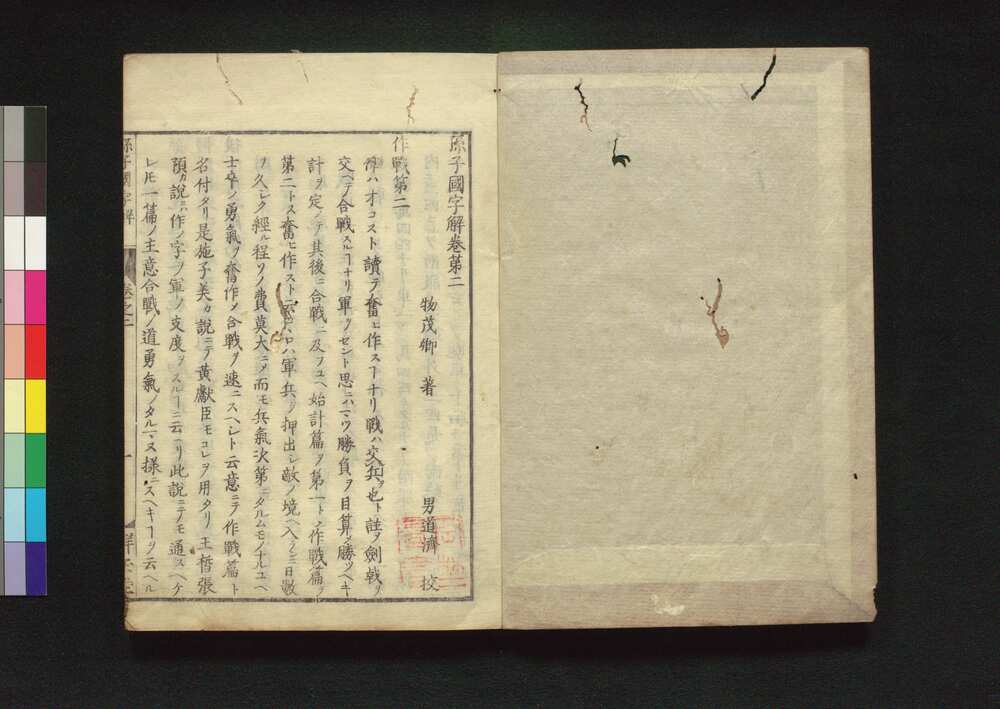 孫子國字解卷第二
物茂卿 著 男道濟 校
作戰第二
作ハオコスト讀テ奮ヒ作スヿナリ戰ハ交兵也ト註ソ劍戟ヲ
交ヘテ合戰スルヿナリ軍ヲセント思ニハマツ勝負ヲ目算メ勝ツヘキ
計ヲ定メテ其後ニ合戰ニ及フユヘ始計篇ヲ第一トメ作戰篇ヲ
第二トス奮ヒ作ストニ云ハ軍兵ヲ押出シ敵ノ境ヘ入テ日數
ヲ久シク經ル程ソノ費莫大ニメ而モ兵氣次第ニタルムモノナルユヘ
士卒ノ勇氣ヲ奮作メ合戰ヲ速ニスヘシト云意ニテ作戰篇ト
名付タリ是施子美カ說ニテ黃獻臣モコレヲ用タリ王晳張
預カ說ニハ作ノ字ヲ軍ノ支度ヲスルヿニ云ヘリ此說ニテモ通スヘケ
レモ一篇ノ主意合戰ノ道勇氣ノタルマヌ樣ニスヘキヿヲ云ヘル
孫子國字解
卷之二
一